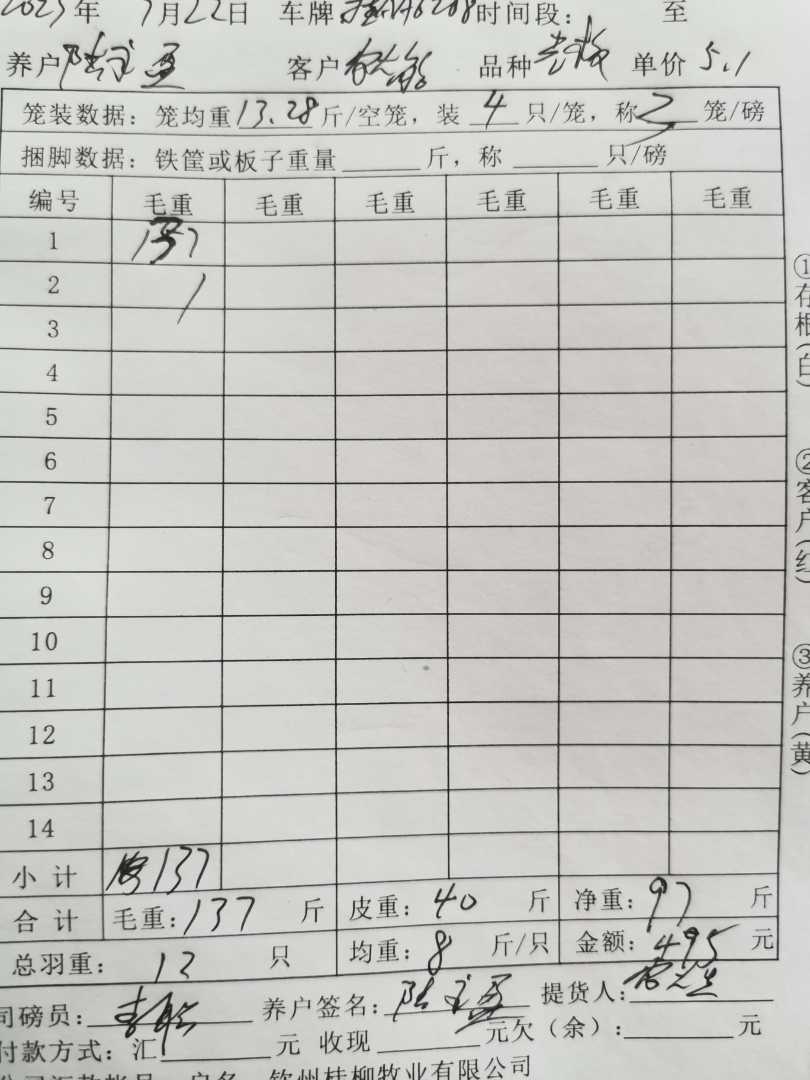 2025年 7月22日 车牌: 6208 时间段: 至
养户 陆 客户 品种 单价 5.1
笼装数据: 笼均重 13.28 斤/空笼, 装 4 只/笼, 称 3 笼/磅
捆脚数据: 铁筐或板子重量 斤, 称 只/磅
编号 毛重 毛重 毛重 毛重 毛重 毛重
1 137
2
3
4
5
6
7
8
9
10
11
12
13
14
小计 137
合计 毛重: 137 斤 皮重: 40 斤 净重: 97 斤
总羽重: 12 只 均重: 8 斤/只 金额: 495 元
司磅员: 李 养户签名: 陆 提货人:
付款方式: 汇 元 收现 元欠(余): 元
户名 钦州桂柳牧业有限公司
①存根(白) ②客户(红) ③养户(黄)